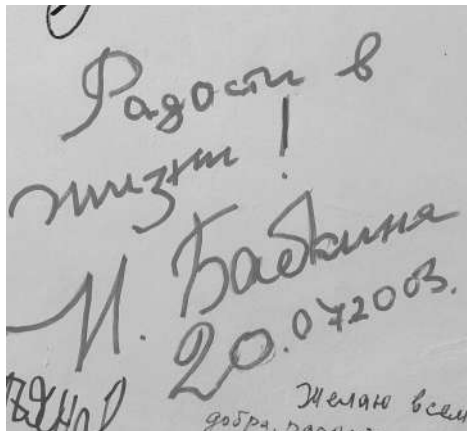 Радости в
жизни!
Н. Бабкина
20.072003.
Желаю всем
добра,